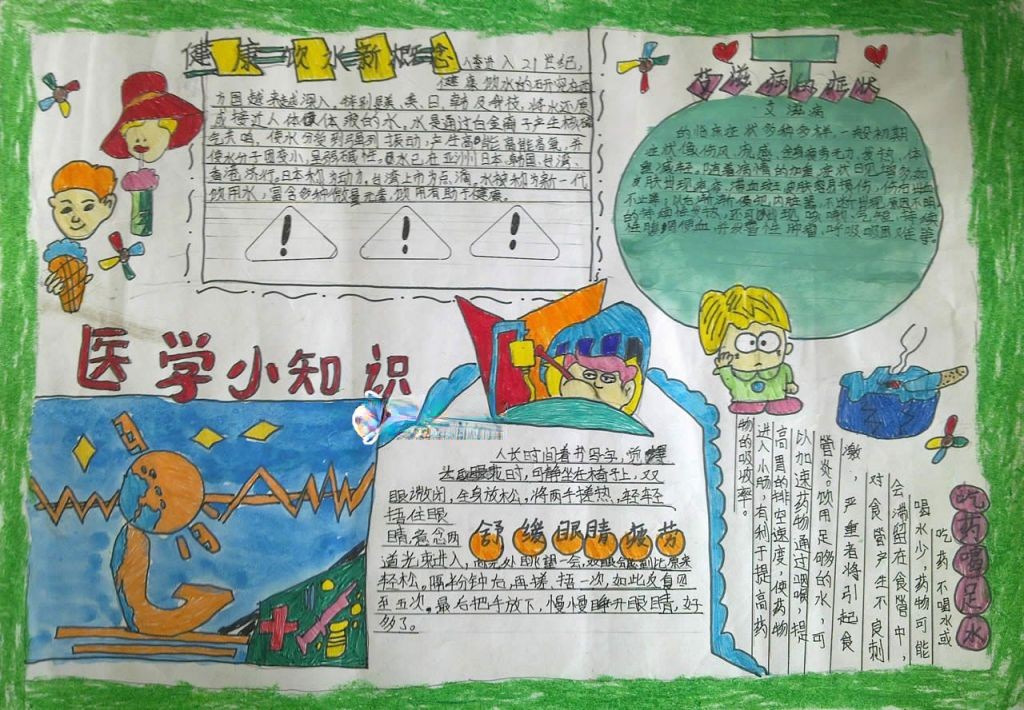 健康饮水新概念
人类进入21世纪,
健康饮水的研究在西
方国越来越深入。特别是美、英、日、韩及科技,将水还原
成接近人体体液的水。水是通过白金离子产生核磁
使水分受到强烈振动,产生高能
使水分子团变小,呈弱碱性。水已在亚洲日本、韩国、台湾、
香港流行。日本称为动力,台湾上市为点滴,水被称为新一代
饮用水,富含多种微量元素,饮用有助于健康。
! ! !
艾滋病的症状
艾滋病
的临床症状多种多样,一般初期
症状像伤风、流感、全身疲劳无力、发热、体
重减轻。随着病情的加重,症状日见增多如
皮肤出现
不止等;以后渐渐侵犯内脏器,不断出现原因不明
的持续性发热,还可出现咳嗽、气短、持续
性腹泻便血、并发恶性肿瘤、呼吸困难等。
医学小知识
人长时间看书写字,觉
时,可静坐在椅子上,双
眼微闭,全身放松,将两手搓热,轻轻
捂住眼
睛,意念两
舒缓眼睛疲劳
道光束进入,向远处眺望一会,双眼会感到比原来
轻松,隔半分钟右,再搓,捂一次,如此反复四
至五次。最后把手放下,慢慢睁开眼睛,好
多了。
吃药喝足水
吃药不喝水或
喝水少,药物可能
会滞留在食管中,
对食管产生不良刺
激,严重者将引起食
管炎。饮用足够的水,可
以加速药物通过咽喉,提
高胃的排空速度,使药物
进入小肠,有利于提高药
物的吸收率。